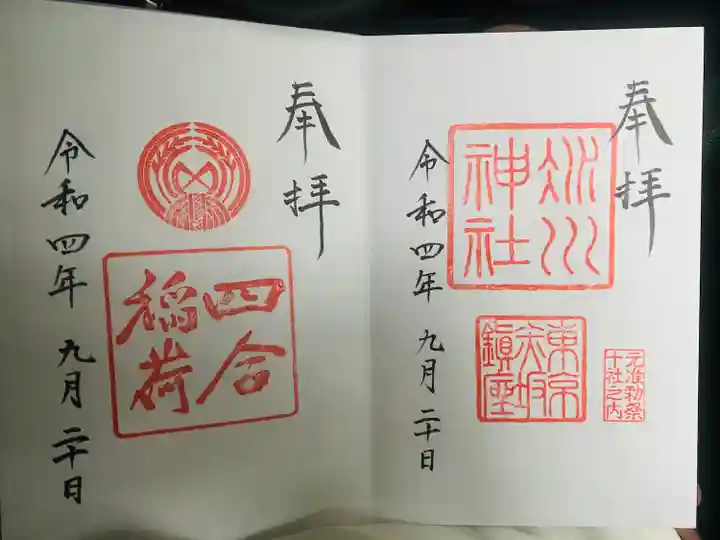 奉拝
氷川
神社
東京
赤坂
鎮座
元准勅祭
十社之内
令和四年 九月 二十日
奉拝
四合
稲荷
令和四年 九月 二十日